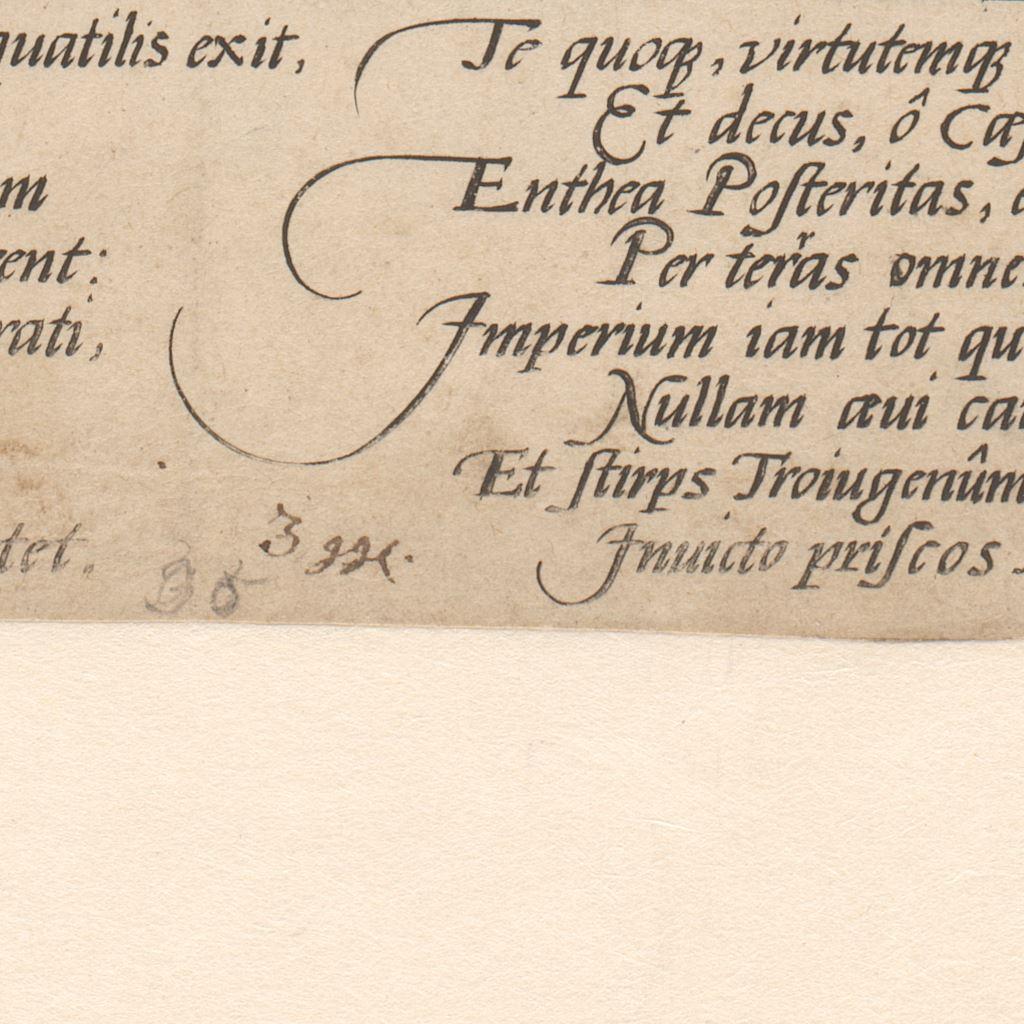 quatilis exit,
m
ent:
rati,
tet.
Te quoq, virtutemq
Et decus, ô Cæſ
Enthea Poſteritas,
Per terras omne
Imperium iam tot qu
Nullam æui ca
Et ſtirps Troiugenûm
Inuicto priſcos
3
36